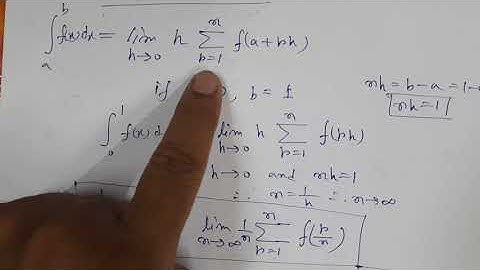 ∫ₐᵇ f(x)dx = lim_{h→0} h ∑_{p=1}^{n} f(a+ph)
if , b = 1
nh = b-a = 1-
nh = 1
∫₀¹ f(x) d lim_{h→0} h ∑_{p=1}^{n} f(ph)
h→0 and nh=1
∴ n = 1/h ∴ n→∞
lim_{n→∞} 1/n ∑_{p=1}^{n} f(p/n)